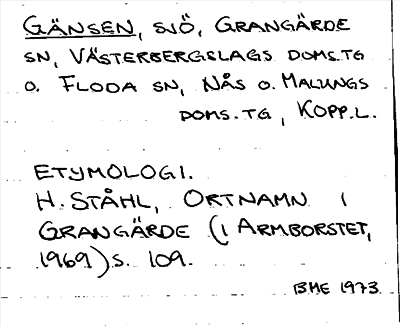 GÄNSEN, SJÖ, GRANGÄRDE
SN, VÄSTERBERGSLAGS DOMS.TG
O. FLODA SN, NÅS O. MALUNGS
DOMS.TG, KOPP.L.
ETYMOLOGI.
H. STÅHL, ORTNAMN I
GRANGÄRDE (I ARMBORSTET,
1969) S. 109.
BME 1973